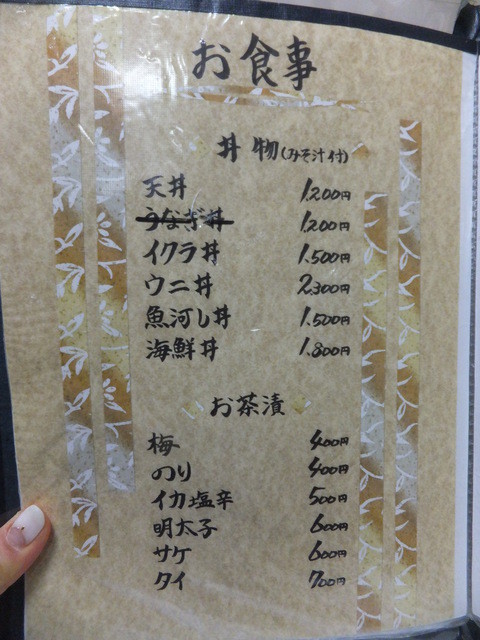 お食事
丼物(みそ汁付)
天丼 1,200円
うなぎ丼 1,200円
イクラ丼 1,500円
ウニ丼 2,300円
魚河し丼 1,500円
海鮮丼 1,800円
お茶漬
梅 400円
のり 400円
イカ塩辛 500円
明太子 600円
サケ 600円
タイ 700円